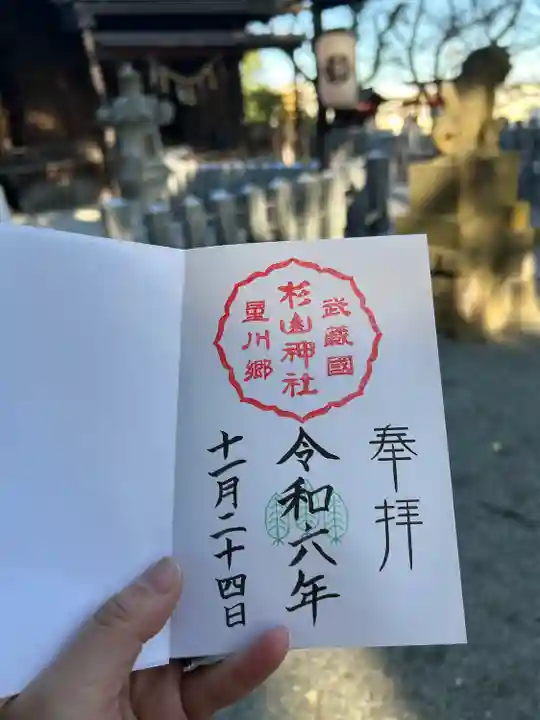 武蔵國
杉山神社
星川郷
奉拝
令和六年
十一月二十四日